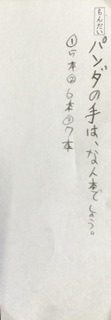 もんだい
パンダの手は、なん本でしょう。
①5本②6本③7本